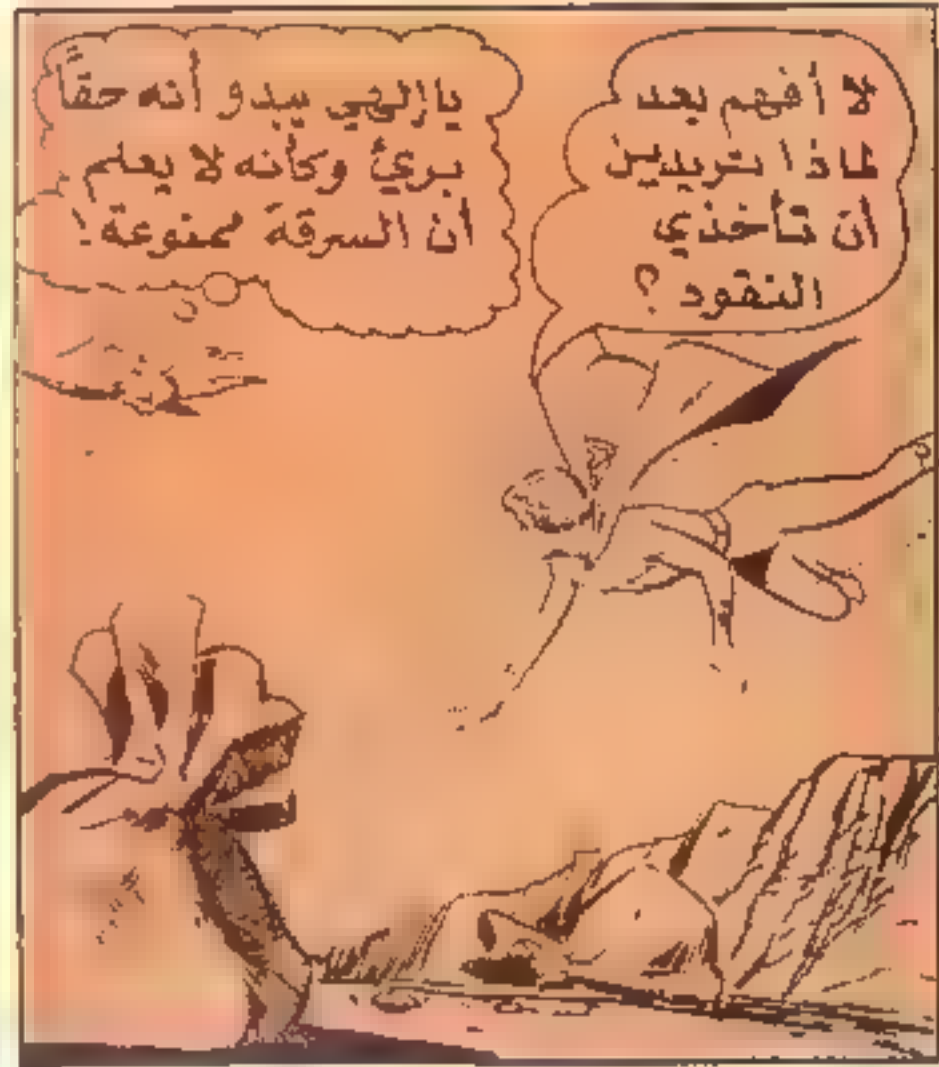 لا أفهم بعد
لماذا تريدين
أن تأخذي
النقود ؟
ياإلهي يبدو أنه حقاً
بريئ وكأنه لا يعلم
أن السرقة ممنوعة !